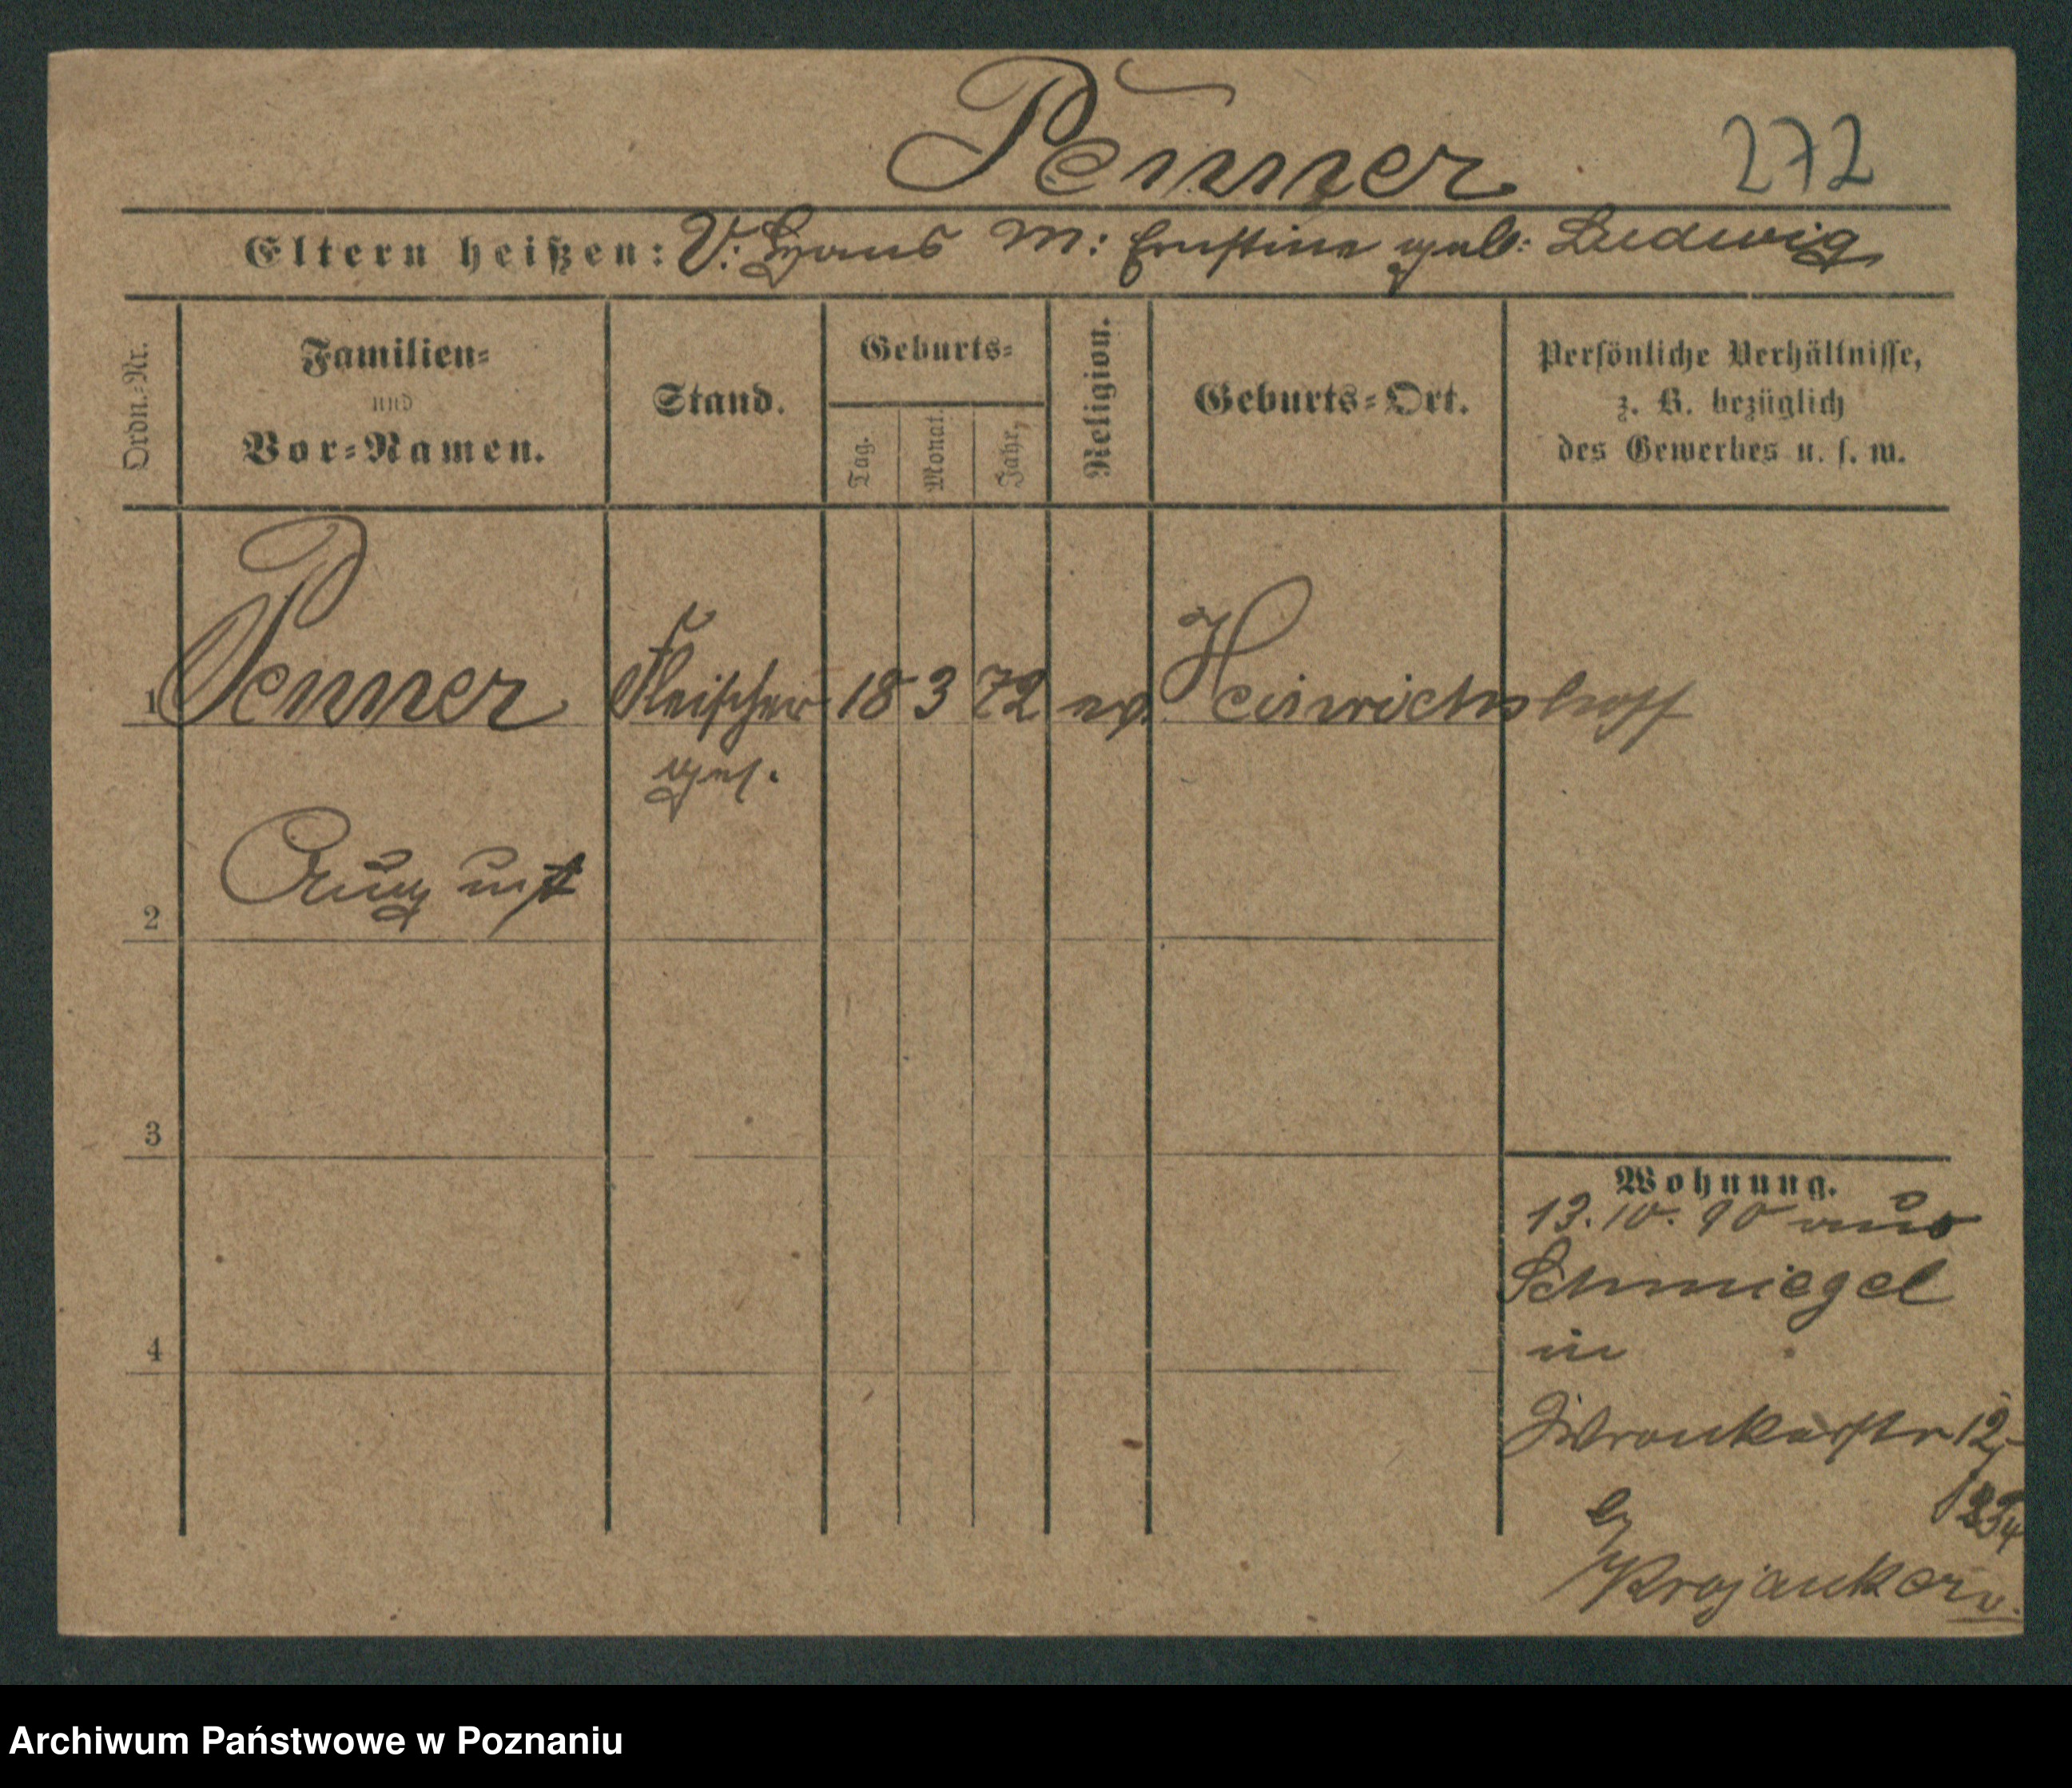 Penner 272
Eltern heißen: V: Hans M: Ernstine geb: Ludwig
Ordn.-Nr.
Familien-
und
Vor-Namen.
Stand.
Geburts-
Tag.
Monat.
Jahr,
Religion.
Geburts-Ort.
Persönliche Verhältnisse,
z. B. bezüglich
des Gewerbes u. s. w.
1 Penner Fleischer 18 3 72 ev. Heinrichshoff
ges.
August
2
3
4
Wohnung.
13. 10. 90 aus
Schmiegel
in
Wronkerstr 12,
b/
Krojanker